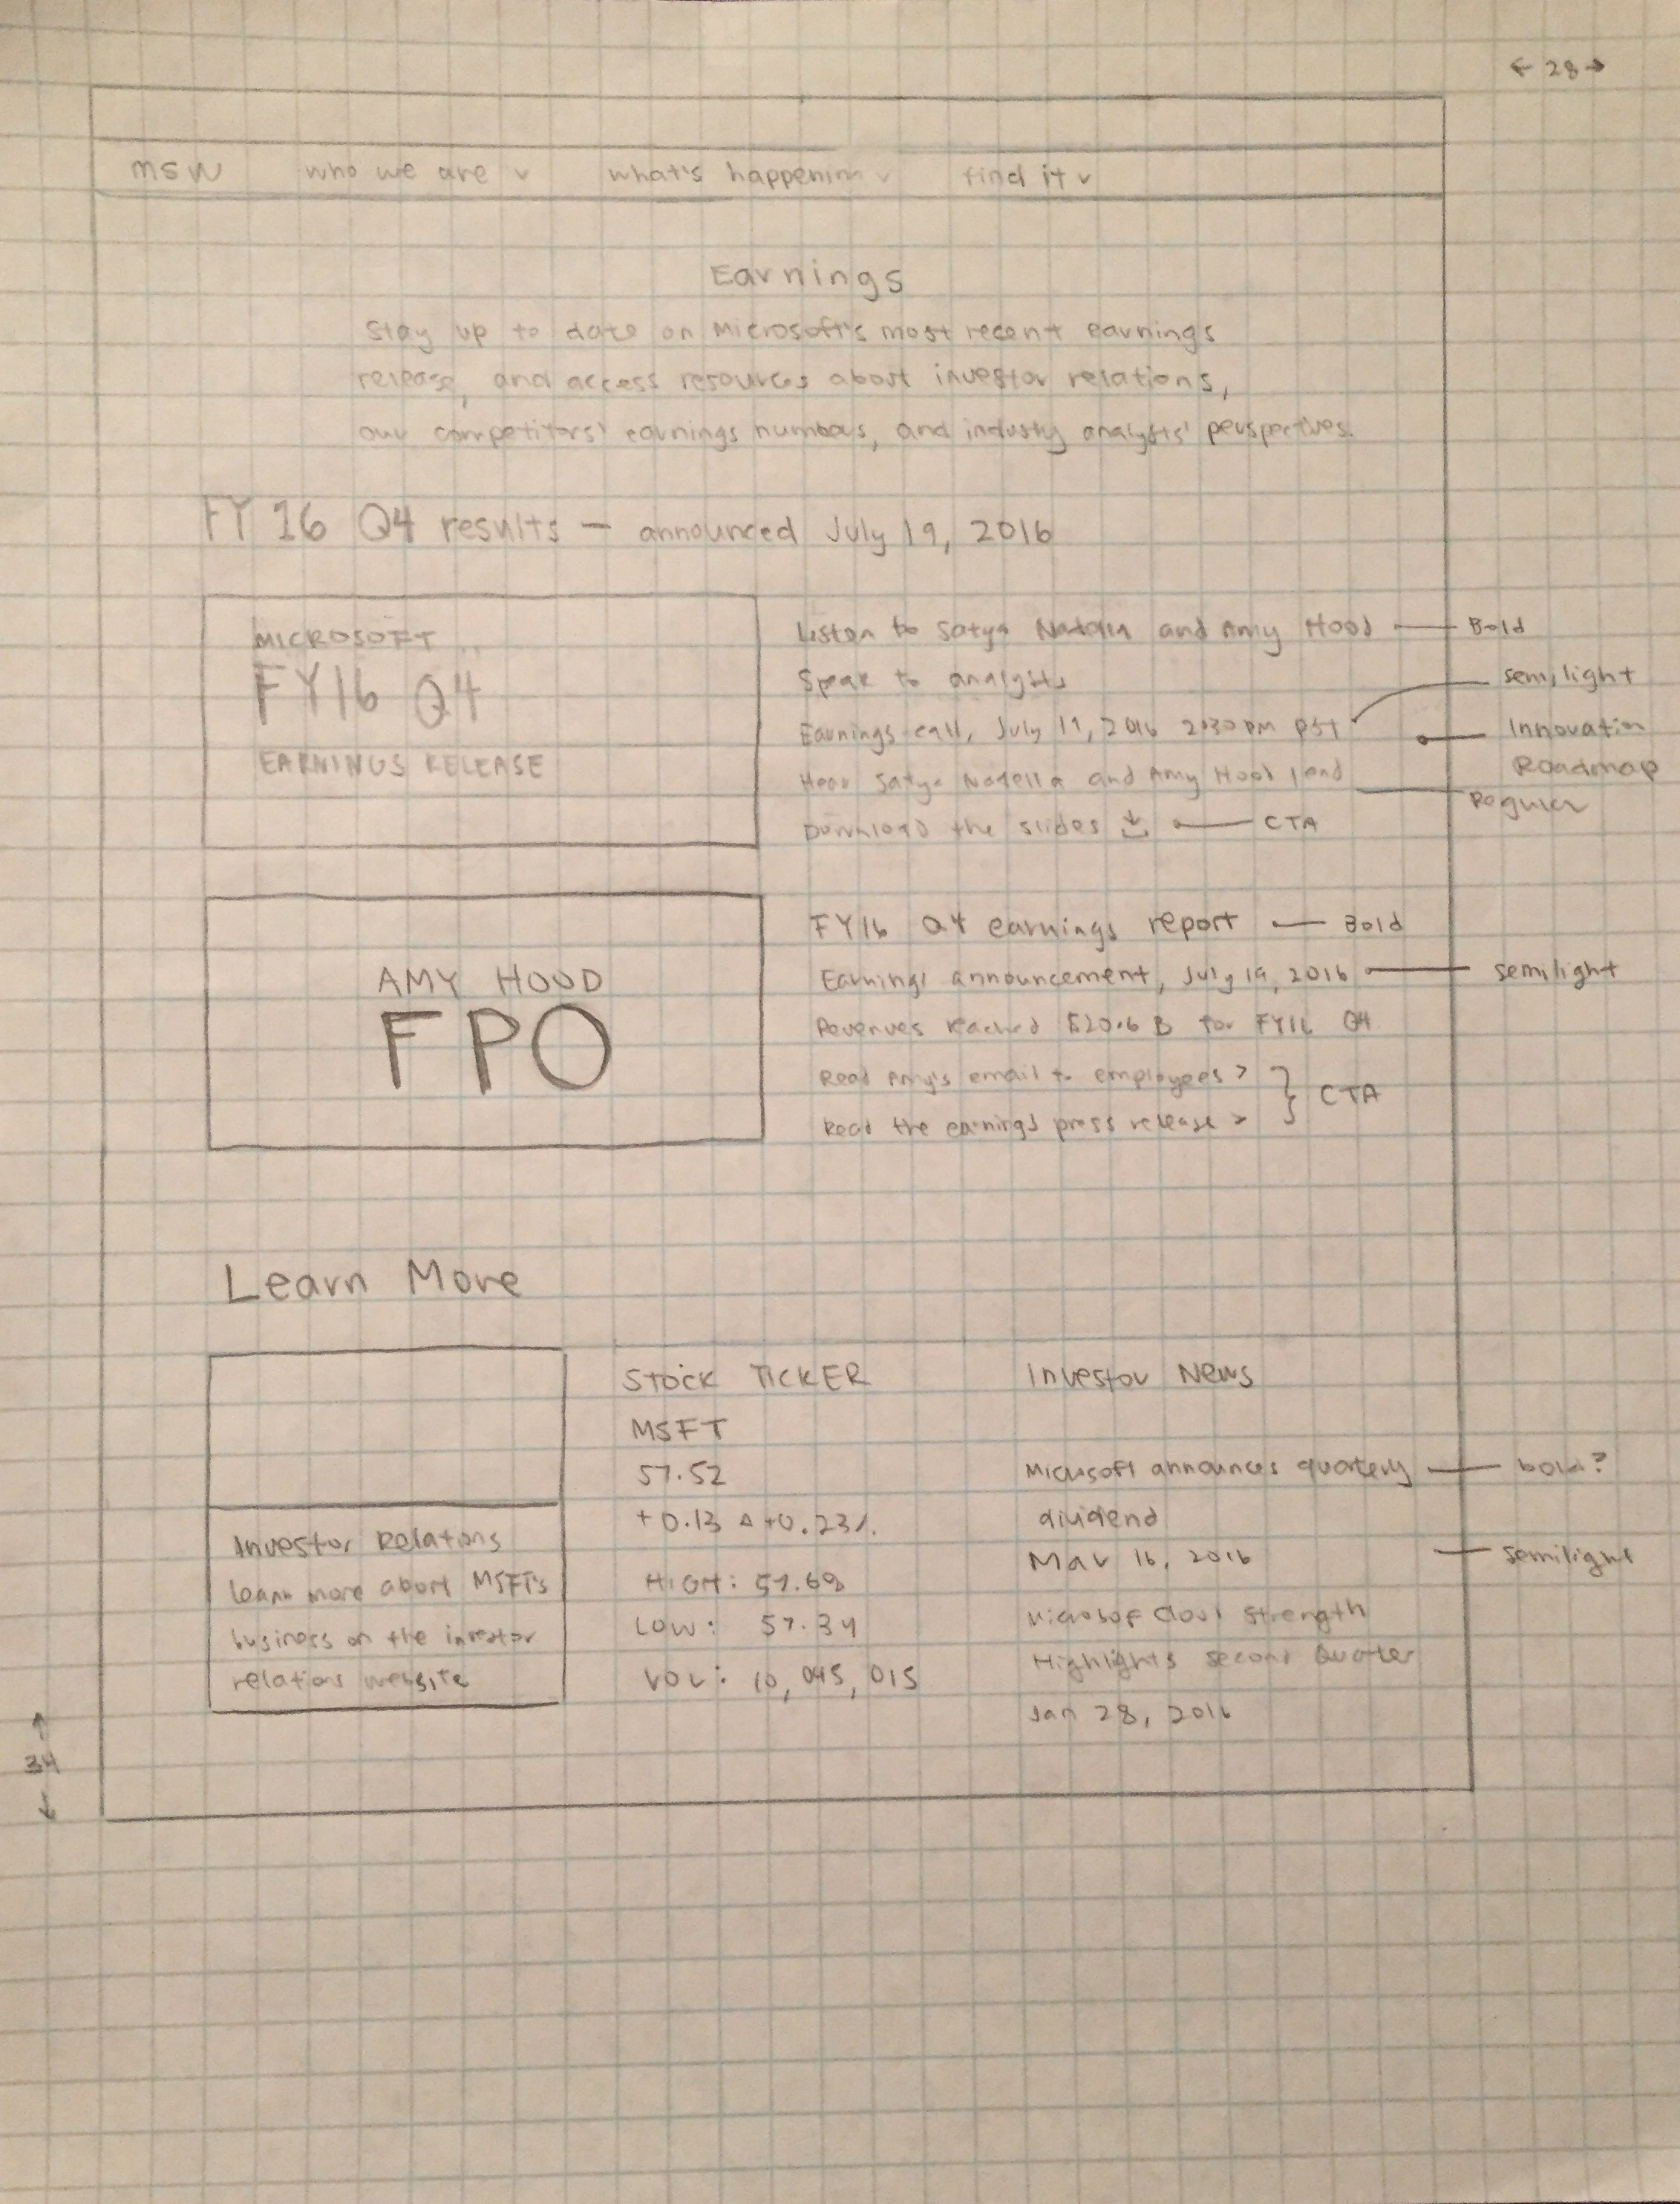 ← 28 →
msw who we are v what's happenin v find it v
Earnings
Stay up to date on Microsoft's most recent earnings
release, and access resources about investor relations,
our competitors' earnings numbers, and industry analysts' perspectives.
FY 16 Q4 results — announced July 19, 2016
MICROSOFT
FY16 Q4
EARNINGS RELEASE
Listen to Satya Nadella and Amy Hood — Bold
Speak to analysts
semilight
Earnings call, July 19, 2016 2:30 PM PST
Innovation
Roadmap
Hear Satya Nadella and Amy Hood
Regular
Download the slides — CTA
AMY HOOD
FPO
FY16 Q4 earnings report — Bold
Earnings announcement, July 19, 2016 — semilight
Revenues reached $20.6 B for FY16 Q4
Read Amy's email to employees >
Read the earnings press release >
} CTA
Learn More
Investor Relations
learn more about MSFT's
business on the investor
relations website
STOCK TICKER
MSFT
57.52
+0.13 △ +0.23%
HIGH: 57.68
LOW: 57.34
VOL: 10,045,015
Investor News
Microsoft announces quarterly — bold?
dividend
Mar 16, 2016 — semilight
Microsof Cloud Strength
Highlights second Quarter
Jan 28, 2016
↑
34
↓